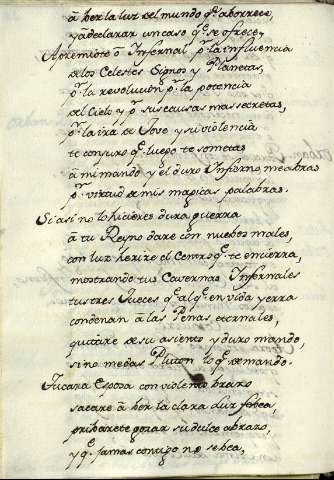 â ber la luz del mundo q̃ aborrece,
y a declarar un caso q̃ se ofrece,
Apremiote ô Infernal p.r la influencia
de los Celestes Signos y Planetas,
p.r la revoluzión p.r la potencia
del Cielo y p.r sus causas mas secretas,
p.r la ira de Jove y su violencia
te conjuro q̃ luego te sometas
â mi mando y el duro Infierno me abras
p.r virtud de mis magicas palabras.
Si asi no lo hicieres dura guerra
â tu Reyno dare con nuebos males,
con luz herire el Centro q̃ te encierra,
mostrando tus Cavernas Infernales
tus tres Jueces q̃ al q̃ en vida yerra
condenan â las Penas eternales,
quitare de su asiento y duro mando,
si no me das Pluton lo q̃ demando.
Tu cara Esposa con violento brazo
sacare â ber la clara luz Febea,
pribarete gozar su dulce abrazo,
y q̃ jamas contigo no se bea,